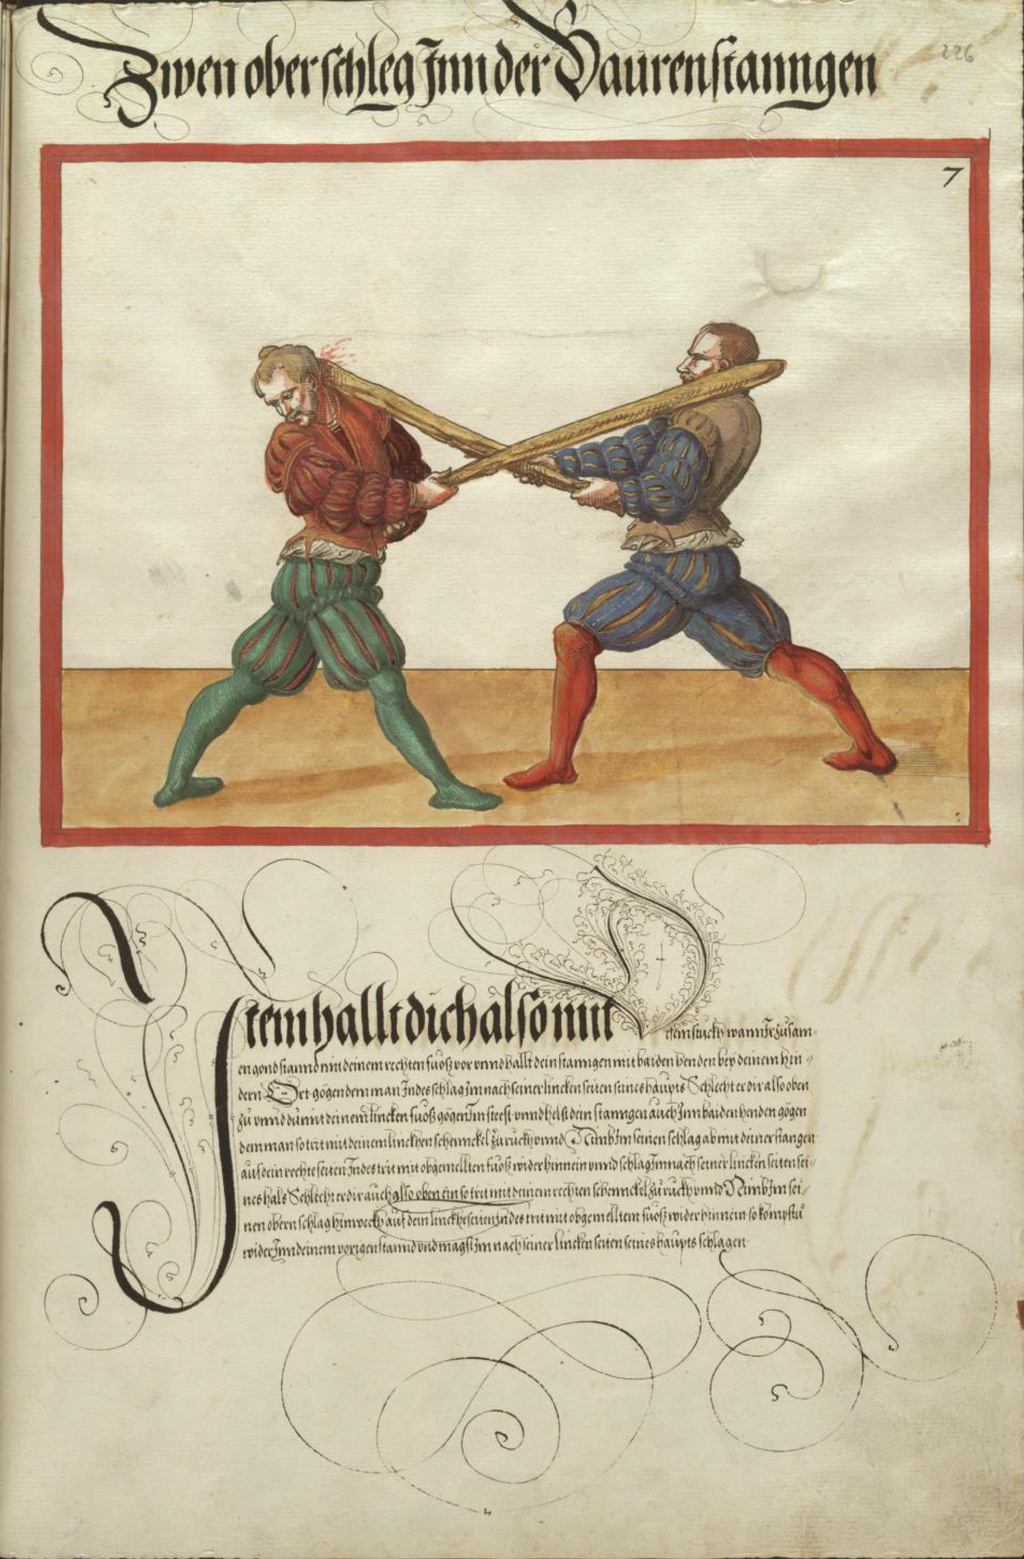 Zwen ober schleg Jnn der Baurenstanngen
226
7
Jtem hallt dich also mit
disem stuckh wann Jr zusam-
en gond stannd mit deinem rechten fuoß vor vnnd hallt dein stanngen mit baiden henden bey deinem hin-
dern Ort gögen dem man Jndes schlag Jm nach seiner lincken seiten seines haupts Schlecht er dir also oben
zu vnnd du mit deinem lincken fuoß gögen Jm steest vnnd helst dein stanngen auch Jnn baiden henden gögen
dem man so trit mit deinem linckhen schennckel zuruckh vnnd Nimb Jm seinen schlag ab mit deiner stangen
auf dein rechte seiten Jndes trit mit obgemelltem fuoß wider hinnein vnnd schlag Jm nach seiner lincken seiten sei-
nes hals Schlecht er dir auch also oben ein so trit mit deinem rechten schennckel zuruckh vnnd Nimb Jm sei-
nen obern schlag hinweckh auf dein linckhe seiten Jndes trit mit obgemelltem fuoß wider hinnein so kompstu
wider Jnn deinem vorigen stannd vnd magst Jm nach seiner lincken seiten seines haupts schlagen